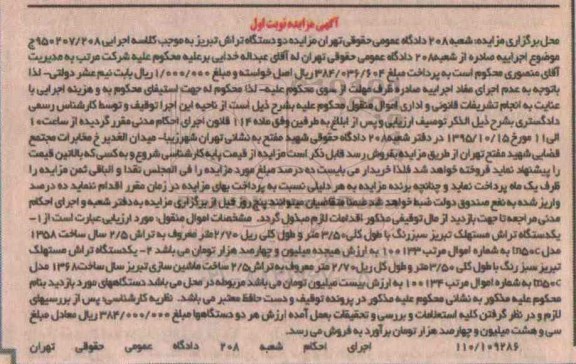 آگهی مزایده نوبت اول
محل برگزاری مزایده: شعبه ۲۰۸ دادگاه عمومی حقوقی تهران مزایده دو دستگاه تراش تبریز به موجب کلاسه اجرایی ۹۵۰۲۰۷/۲۰۸ج
موضوع اجراییه صادره از شعبه ۲۰۸ دادگاه عمومی حقوقی تهران له آقای عبداله خدایی برعلیه محکوم علیه شرکت مرتب به مدیریت
آقای منصوری محکوم است به پرداخت مبلغ ۳۸۴/۰۳۶/۶۰۴ ریال اصل خواسته و مبلغ ۱/۰۰۰/۰۰۰ ریال بابت نیم عشر دولتی- لذا
باتوجه به عدم اجرای مفاد اجراییه صادره ظرف مهلت از سوی محکوم علیه- لذا محکوم له جهت استیفای محکوم به و هزینه اجرایی با
عنایت به انجام تشریفات قانونی و اداری اموال منقول محکوم علیه بشرح ذیل است از ناحیه این اجرا توقیف و توسط کارشناس رسمی
دادگستری بشرح ذیل الذکر توصیف ارزیابی و پس از ابلاغ به طرفین وفق ماده ۱۱۴ قانون اجرای احکام مدنی مقرر گردیده از ساعت ۱۰
الی ۱۱ مورخ ۱۳۹۵/۱۰/۱۵ در دفتر شعبه ۲۰۸ دادگاه حقوقی شهید مفتح به نشانی تهران شهرزیبا- میدان الغدیر خ مخابرات مجتمع
قضایی شهید مفتح تهران از طریق مزایده بفروش رسد قابل ذکر است مزایده از قیمت پایه کارشناسی شروع و به کسی که بالاترین قیمت
را پیشنهاد نماید فروخته خواهد شد فلذا خریدار می بایست ده درصد مبلغ مورد مزایده را فی المجلس نقدا و الباقی ثمن مزایده را
ظرف یک ماه پرداخت نماید و چنانچه برنده مزایده به هر دلیلی نسبت به پرداخت بهای مزایده در زمان مقرر اقدام ننماید ده درصد
واریز شده به نفع صندوق دولت ضبط خواهد شد ضمنا متقاضیان میتوانند پنج روز قبل از برگزاری مزایده به دفتر شعبه و اجرای احکام
مدنی مراجعه تا جهت بازدید از مال توقیفی مذکور اقدامات لازم مبذول گردد. مشخصات اموال منقول: مورد ارزیابی عبارت است از ۱-
یکدستگاه تراش مستهلک تبریز سبز رنگ با طول کلی ۳/۵۰ متر و طول کلی ریل ۲/۷۰ متر معروف به تراش ۲/۵ سال ساخت ۱۳۵۸
مدل tn50c به شماره اموال مرتب ۱۰۰۱۳۳ به ارزش هیجده میلیون و چهارصد هزار تومان می باشد ۲- یکدستگاه تراش مستهلک
تبریز سبز رنگ با طول کلی ۳/۵۰ متر و طول کل ریل ۲/۷۰ متر معروف به تراش ۲/۵ ساخت ماشین سازی تبریز سال ساخت ۱۳۶۸ مدل
tn50c به شماره اموال مرتب ۱۰۰۱۳۴ به ارزش بیست میلیون تومان می باشد مربوطه در محل می باشد دستگاههای مورد بازدید بنام
محکوم علیه مذکور به نشانی محکوم علیه مذکور در پرونده توقیف و دست حافظ معتبر می باشد. نظریه کارشناسی: پس از بررسیهای
لازم و در نظر گرفتن کلیه استعلامات و بررسی و تحقیقات بعمل آمده ارزش هر دو دستگاهها مبلغ ۳۸۴/۰۰۰/۰۰۰ ریال معادل مبلغ
سی و هشت میلیون و چهارصد هزار تومان برآورد به فروش می رسد.
۱۱۰/۱۰۹۲۸۶ اجرای احکام شعبه ۲۰۸ دادگاه عمومی حقوقی تهران